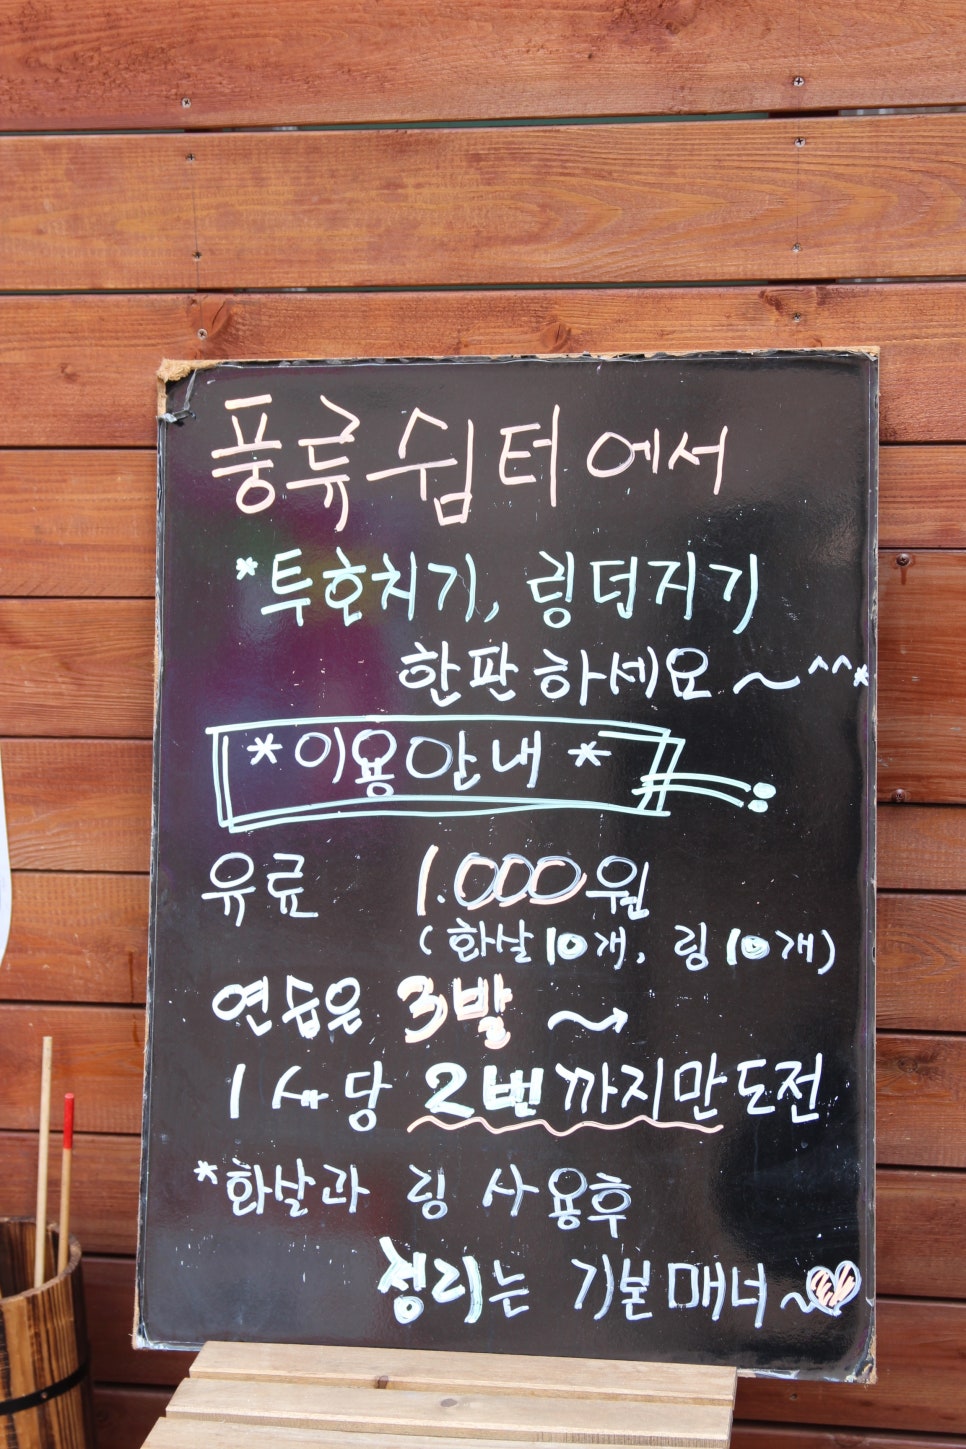 풍류쉼터에서
*투호치기, 링던지기
한판 하세요~^^*
*이용안내*
유료 1.000원
(화살10개, 링10개)
연습은 3발~→
1人당 2번까지만 도전
*화살과 링 사용후
정리는 기본매너~♡